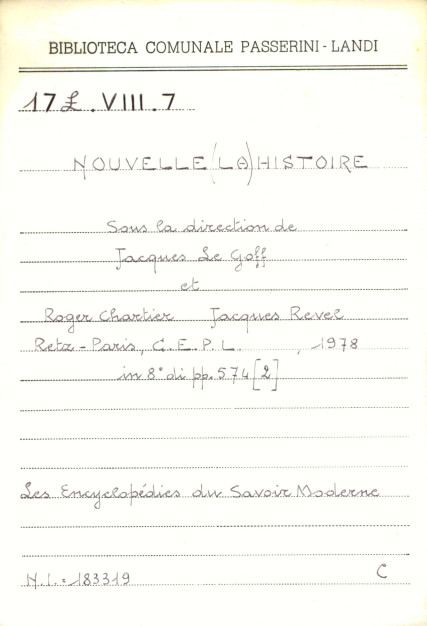 BIBLIOTECA COMUNALE PASSERINI - LANDI
17 £. VIII. 7
NOUVELLE (LA) HISTOIRE
Sous la direction de
Jacques Le Goff
et
Roger Chartier Jacques Revel
Retz - Paris, C.E.P.L. , 1978
in 8° di pp. 574 [2]
Les Encyclopédies du Savoir Moderne
N.I. = 183319 C